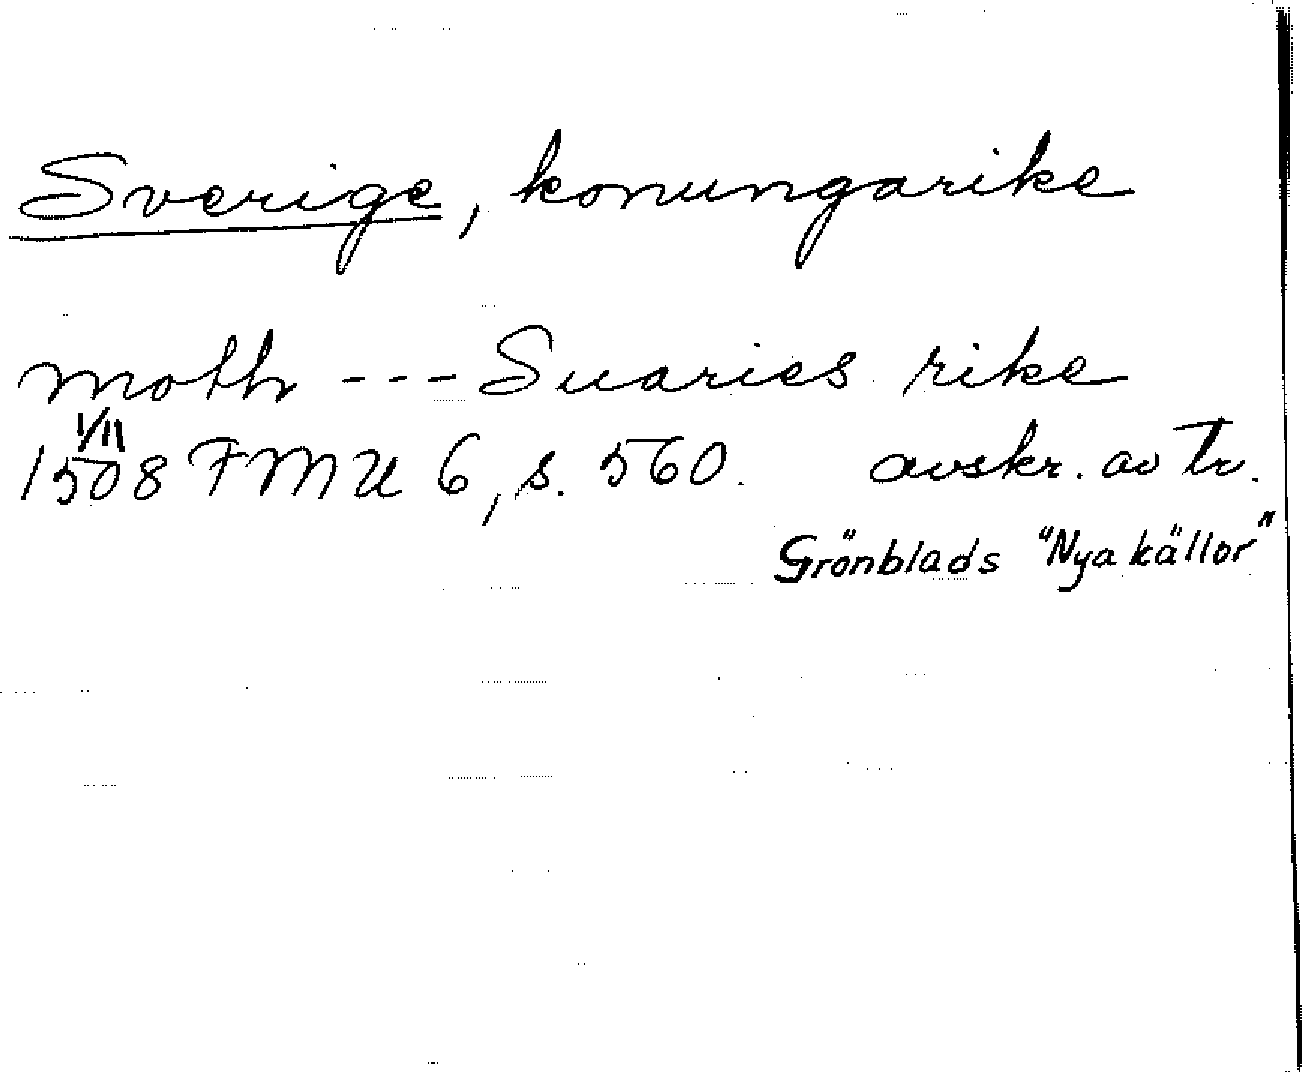 Sverige, konungarike
moth --- Suaries rike
1/11
1508 FMU 6, s. 560. avskr. av Tr.
Grönblads "Nya källor"